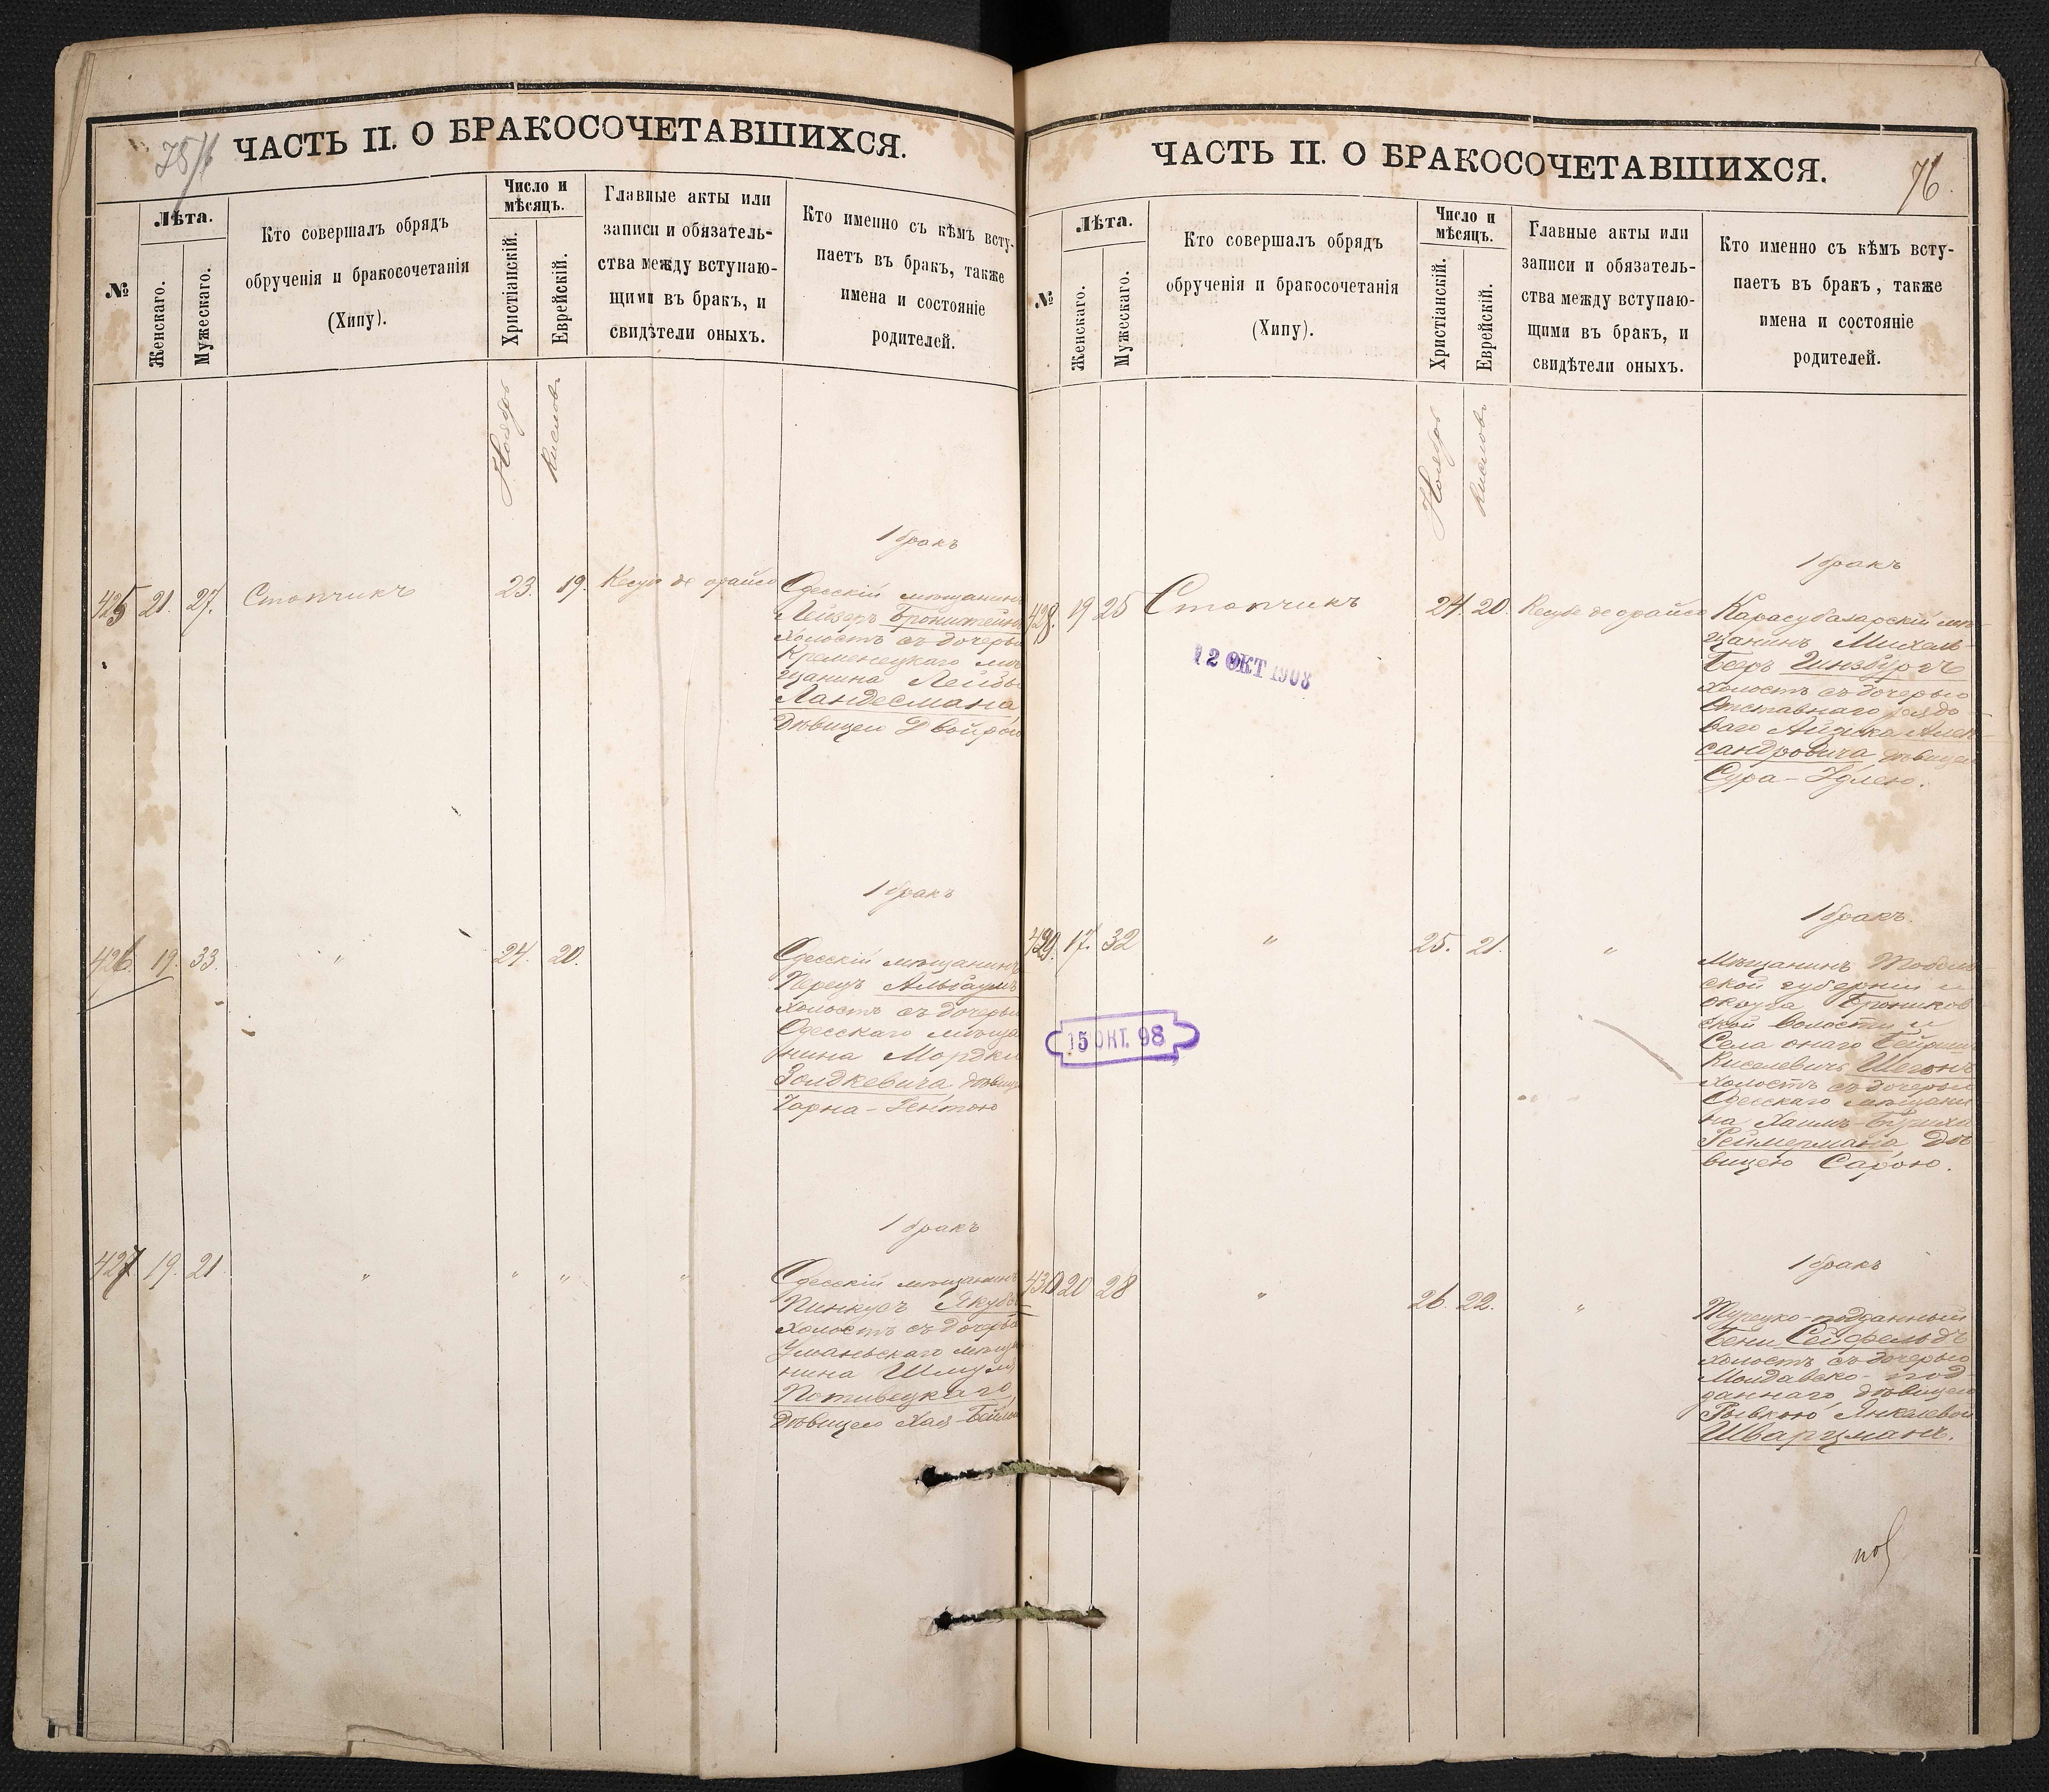 75/16
ЧАСТЬ II. О БРАКОСОЧЕТАВШИХСЯ.
№
Лѣта.
Женскаго.
Мужескаго.
Кто совершалъ обрядъ
обрученія и бракосочетанія
(Хипу).
Число и
мѣсяцъ.
Христіанскій.
Еврейскій.
Главные акты или
записи и обязатель-
ства между вступаю-
щими въ бракъ, и
свидѣтели оныхъ.
Кто именно съ кѣмъ всту-
паетъ въ бракъ, также
имена и состояніе
родителей.
Ноябрь
Кислевъ
1 бракъ
425 21. 27. Стопчикъ 23. 19.
Одесскій мѣщанинъ
Лейзеръ Бронштейнъ
холостъ съ дочерью
Кременецкаго мѣ
щанина Лейбы
Ландесмана
дѣвицею Двойрою
1 бракъ
426. 19. 33. " 24. 20. "
Одесскій мѣщанинъ
Перецъ Альбаумъ
холостъ съ дочерью
Одесскаго мѣща
нина Мордки
Золдкевича дѣвице
Чарна-Гентою
1 бракъ
427 19. 21. " " " "
Одесскій мѣщанинъ
Пинкусъ
холостъ съ дочерью
Уманьскаго мѣща
нина Шмуля
дѣвицею Хая-Бейлою
ЧАСТЬ II. О БРАКОСОЧЕТАВШИХСЯ.
76.
№
Лѣта.
Женскаго.
Мужескаго.
Кто совершалъ обрядъ
обрученія и бракосочетанія
(Хипу).
Число и
мѣсяцъ.
Христіанскій.
Еврейскій.
Главные акты или
записи и обязатель-
ства между вступаю-
щими въ бракъ, и
свидѣтели оныхъ.
Кто именно съ кѣмъ всту-
паетъ въ бракъ, также
имена и состояніе
родителей.
Ноябрь
Кислевъ
1 бракъ
428. 19 25 Стопчикъ 24. 20.
Карасубазарскій мѣ-
щанинъ Михель-
Беръ Гинзбургъ
холостъ съ дочерью
Отставнаго рядо
ваго Айзика Алек-
сандровича дѣвицею
Сура-Идлею.
12 ОКТ 1903
1 бракъ.
429. 17. 32 " 25. 21. "
Мѣщанинъ Тоболь-
ской губерніи и
округа Броников
ской волости и
Села онаго
Киселевичъ
холостъ съ дочерью
Одесскаго мѣщани
на Хаимъ-Бориха
Реймермана дѣ-
вицею Сарою.
15 ОКТ. 98
1 бракъ
430 20 28 " 26. 22. "
Турецко-подданный
Бени Сейфельдъ
холостъ съ дочерью
Молдавско-под
даннаго, дѣвицею
Рывкою Янкелевой
Шварцманъ.